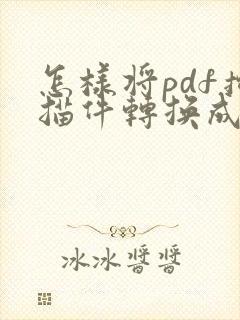 怎樣將pdf掃
描件轉換成
冰冰醬醬